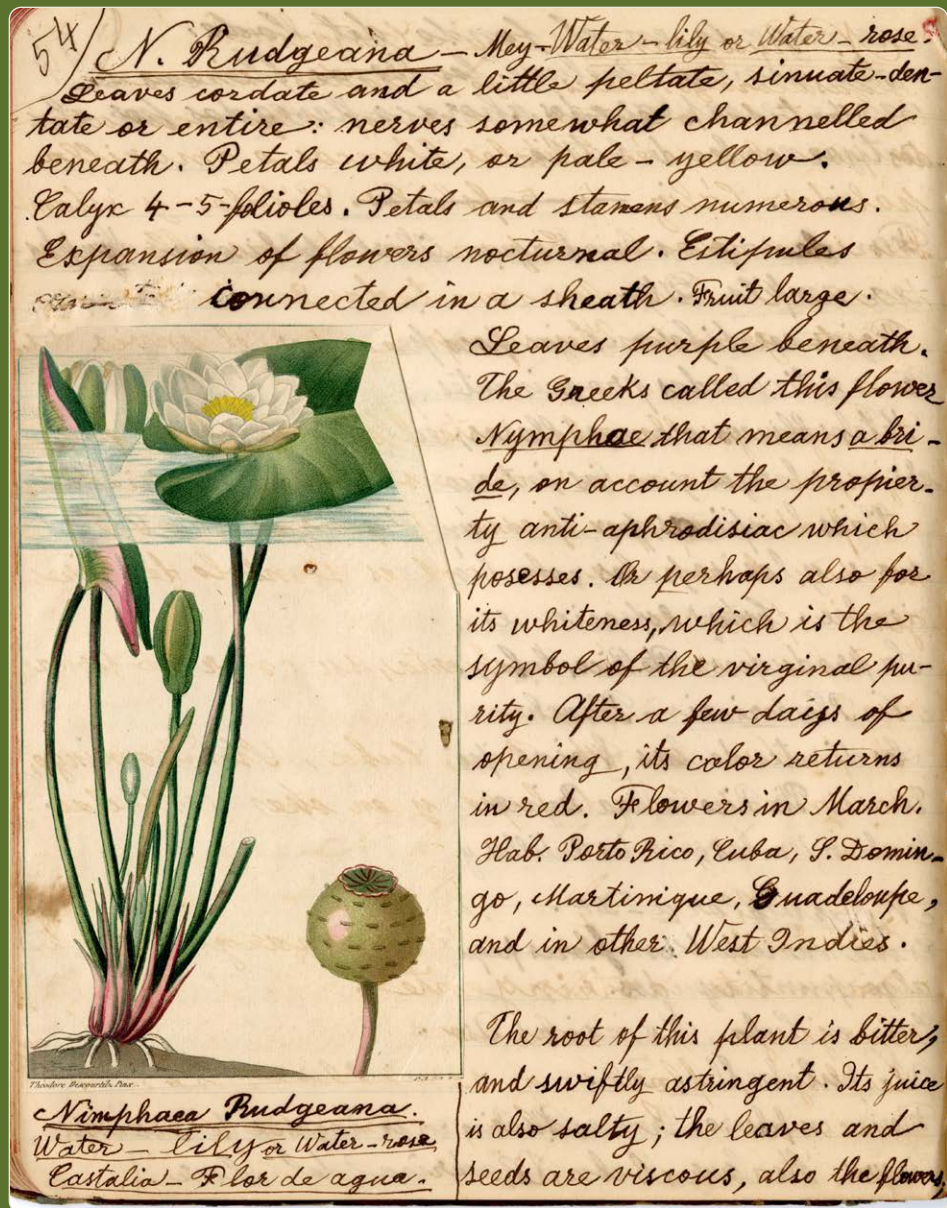 54
N. Rudgeana - Mey-Water-lily or Water-rose.
Leaves cordate and a little peltate, sinuate-den-
tate or entire: nerves somewhat channelled
beneath. Petals white, or pale-yellow.
Calyx 4-5-folioles. Petals and stamens numerous.
Expansion of flowers nocturnal. Estipules
connected in a sheath. Fruit large.
Leaves purple beneath.
The Greeks called this flower
Nymphae that means a bri-
de, on account the propier-
ty anti-aphrodisiac which
posesses. Or perhaps also for
its whiteness, which is the
symbol of the virginal pu-
rity. After a few days of
opening, its color returns
in red. Flowers in March.
Hab. Porto Rico, Cuba, S. Domin-
go, Martinique, Guadeloupe,
and in other West Indies.
The root of this plant is bitter,
and swiftly astringent. Its juice
is also salty; the leaves and
seeds are viscous, also the flowers,
Theodore Descourtilz Pinx.
Nimphaea Rudgeana.
Water-lily or Water-rose
Castalia-Flor de agua.